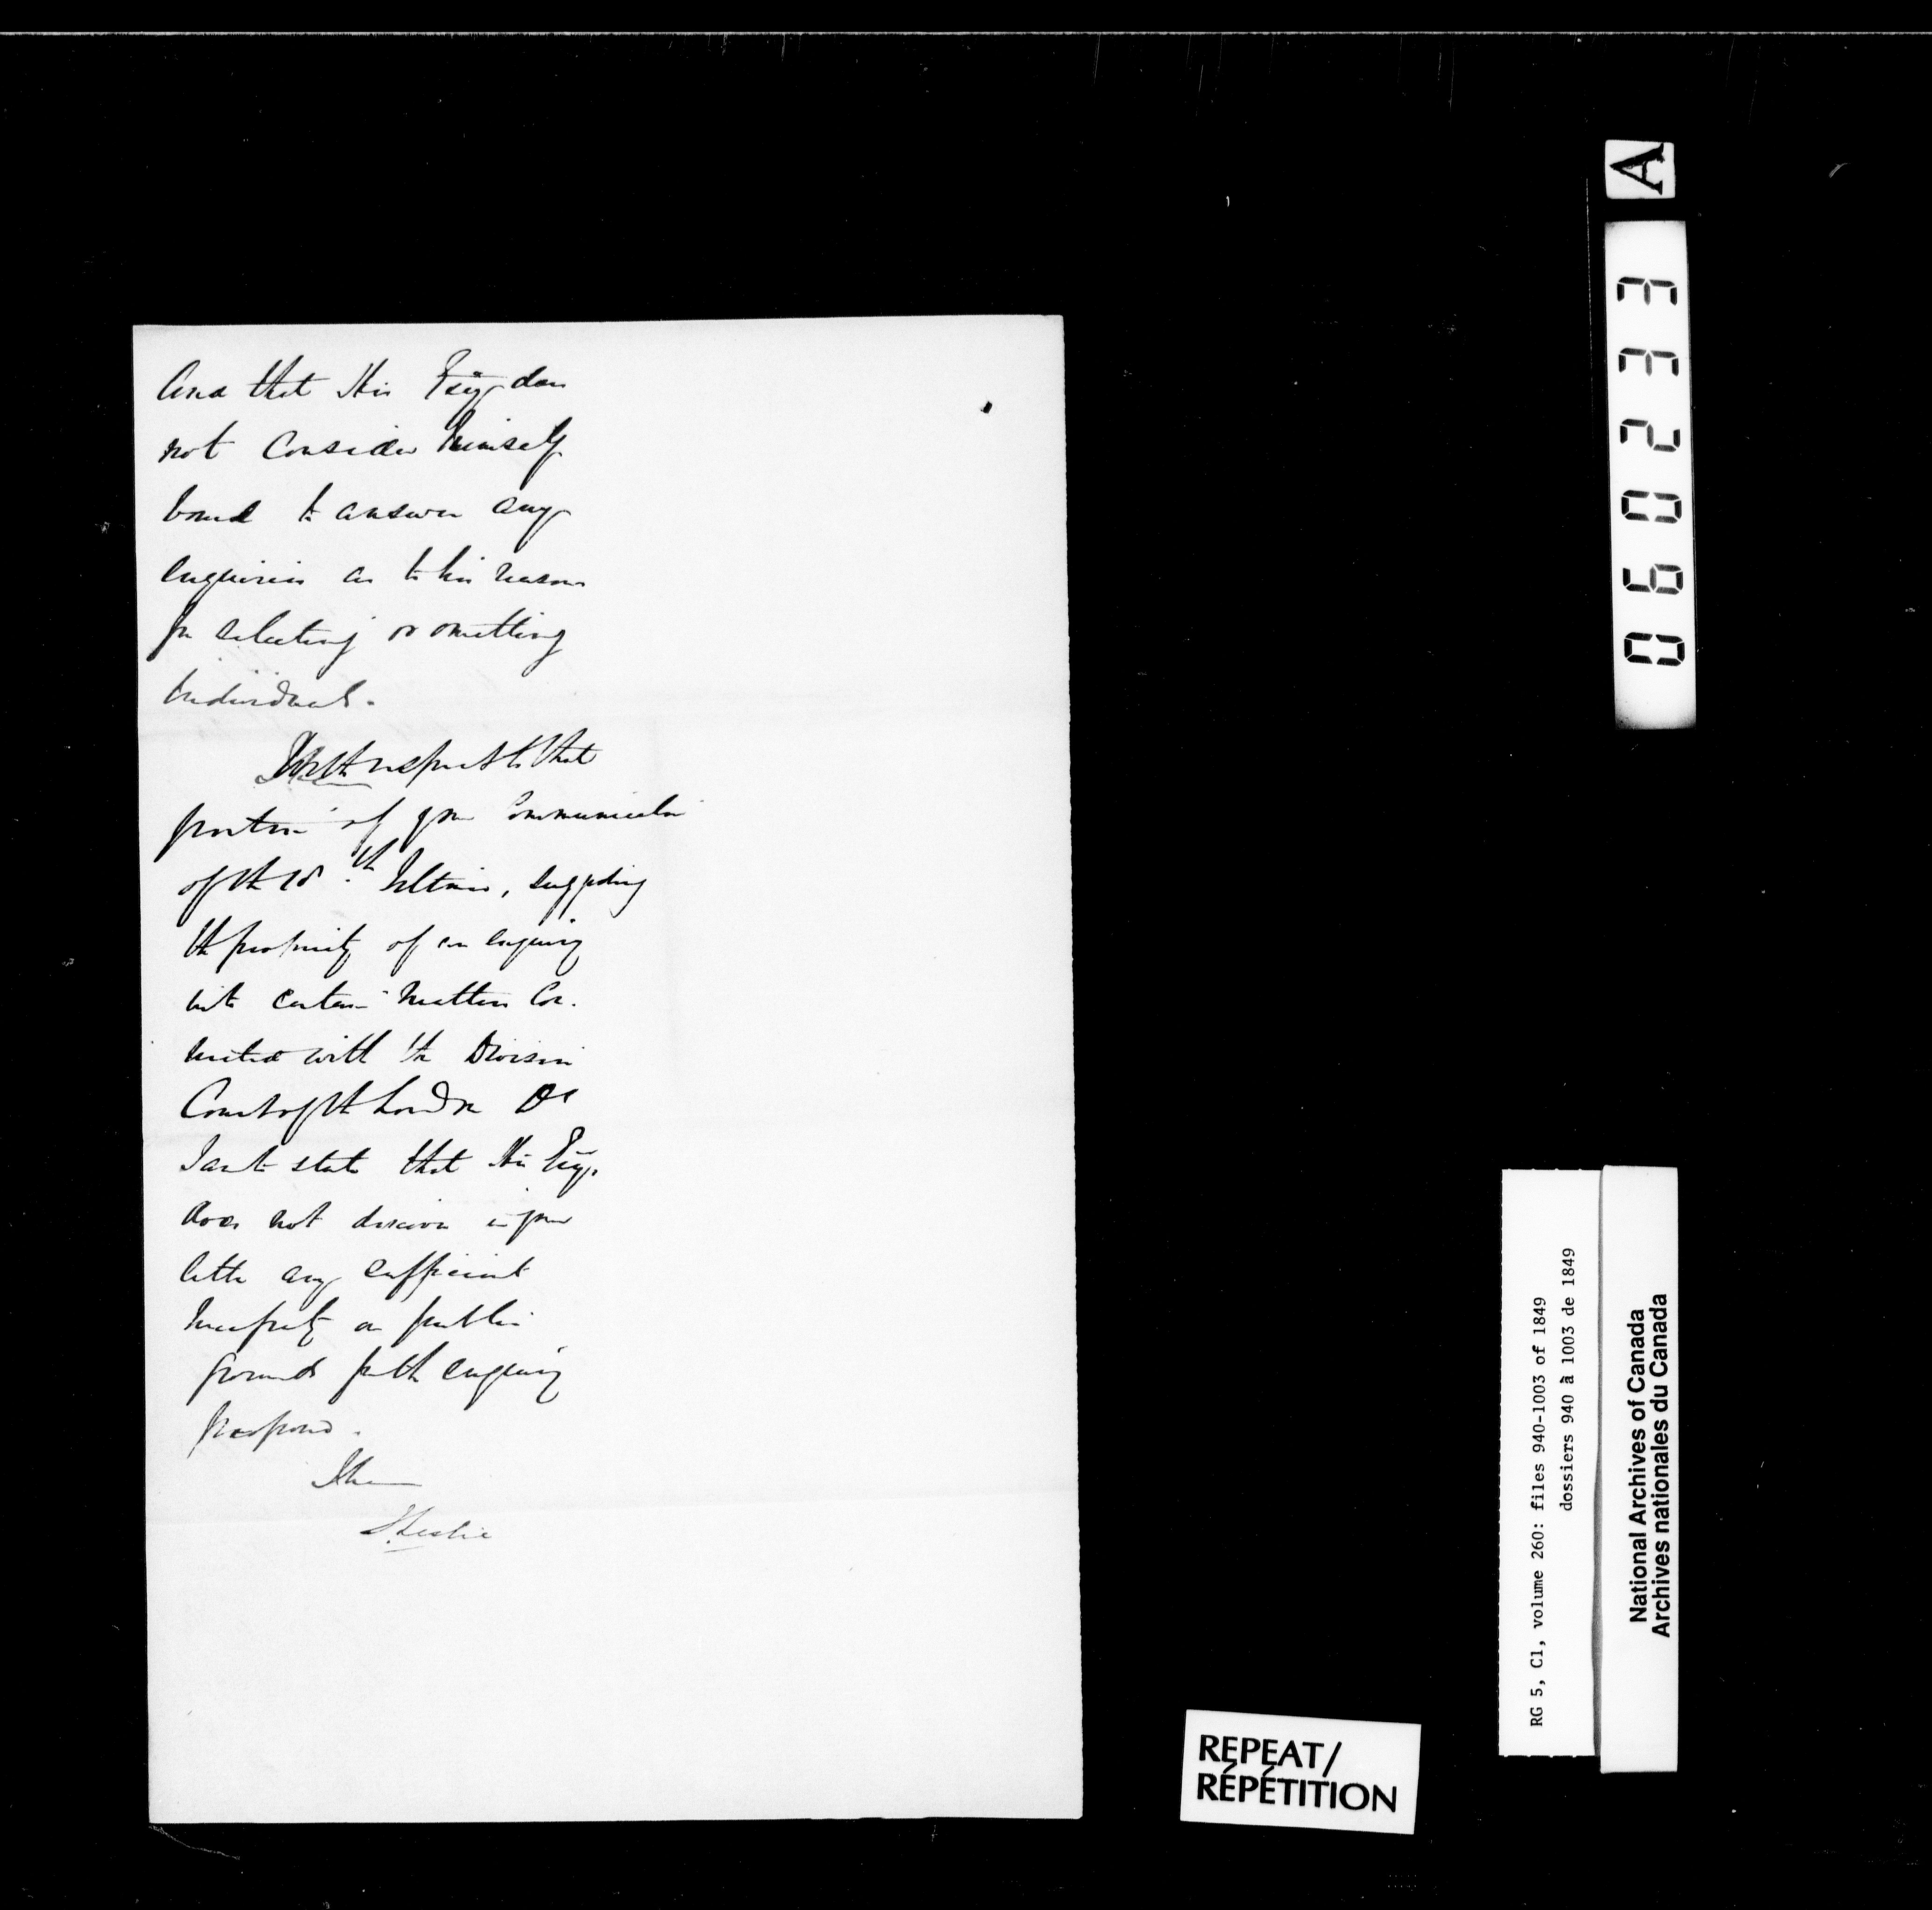 And that His Exŷ does
not Consider himself
bound to answer any
enquiries as to his reasons
for selecting or omitting
individuals.
With respect to that
portion of your Communication
of the 18th Ultimo, suggesting
the propriety of an enquiry
into certain matters Con-
nected with the Division
Court of the London Dt
I am to state that His Exŷ.
does not discover in your
letter any sufficient
necessity on public
grounds for the enquiry
proposed.
I have
J. Leslie
A
060233
RG 5, C1, volume 260: files 940-1003 of 1849
dossiers 940 à 1003 de 1849
National Archives of Canada
Archives nationales du Canada
REPEAT/
RÉPÉTITION